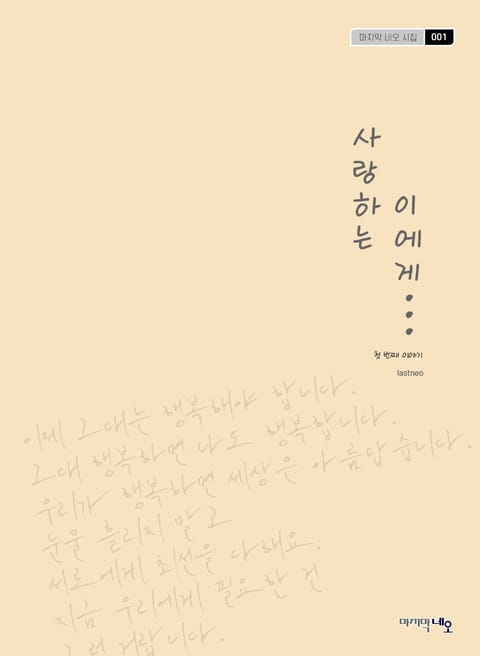 마지막 네오 시집 001
사랑하는
이에게...
첫 번째 이야기
lastneo
이제 그대는 행복해야 합니다.
그대 행복하면 나도 행복합니다.
우리가 행복하면 세상은 아름답습니다.
눈물 흘리지 말고
서로에게 최선을 다해요.
지금 우리에게 필요한 건
그러 거랍니다.
마지막 네오